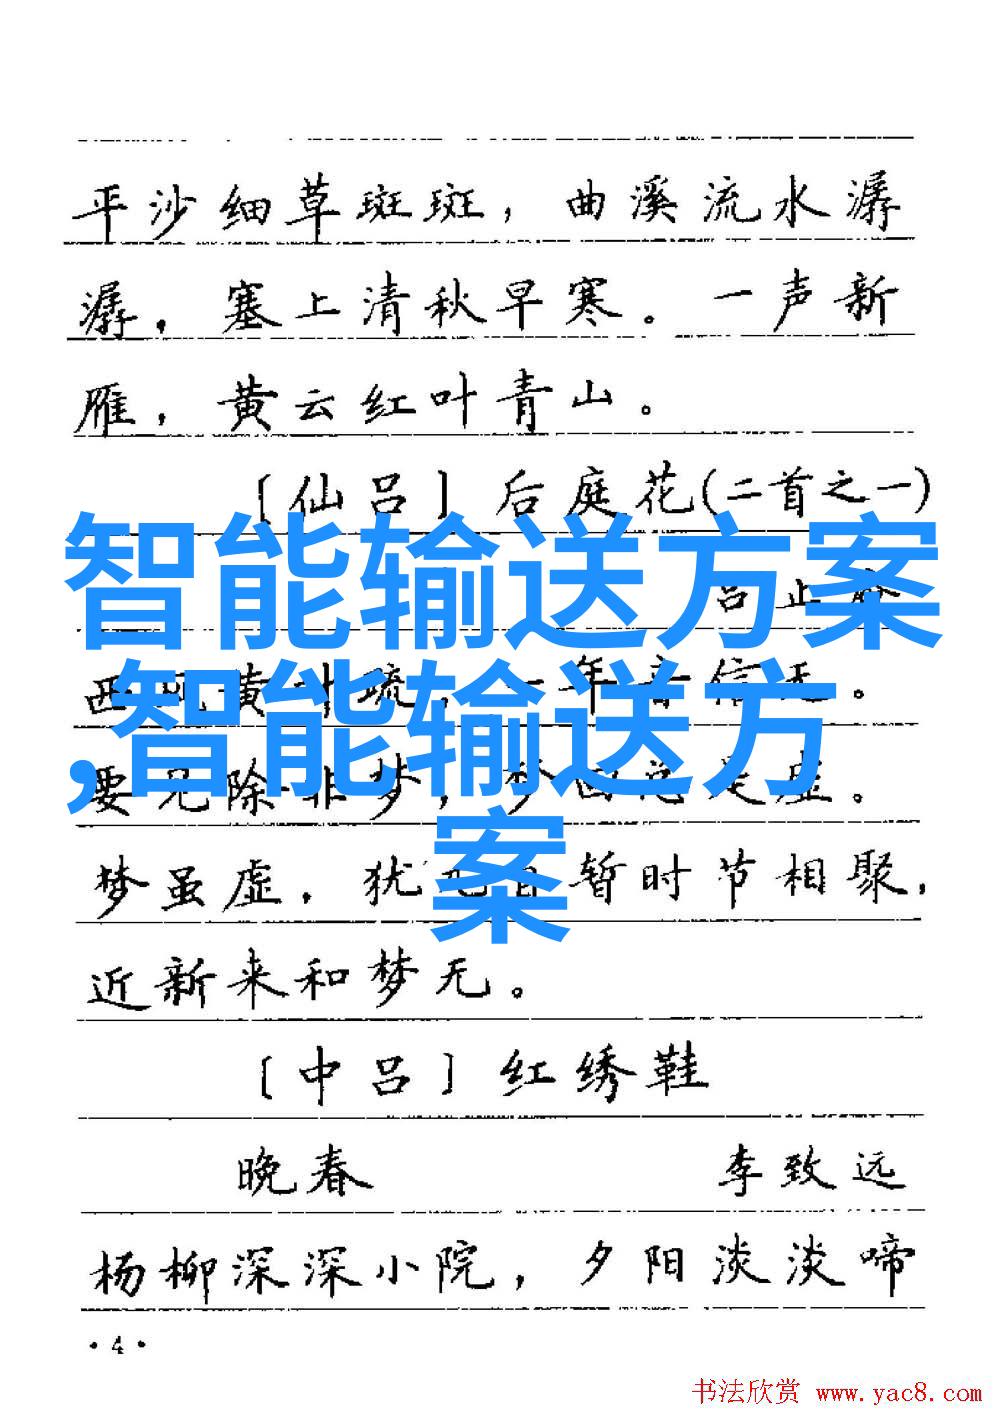 平沙细草斑斑，曲溪流水潺
潺，塞上清秋早寒。一声新
雁，黄云红叶青山。
〔仙吕〕后庭花(二首之一)
智能输送方案
吕止
黄 一年音信
,智能输送方
要见除非梦，梦回总是虚。
案
梦虽虚，犹 暂时节相聚，
近新来和梦无。
〔中吕〕红绣鞋
晚春 李致远
杨柳深深小院，夕阳淡淡啼
·4·
书法欣赏 www.yac8.com